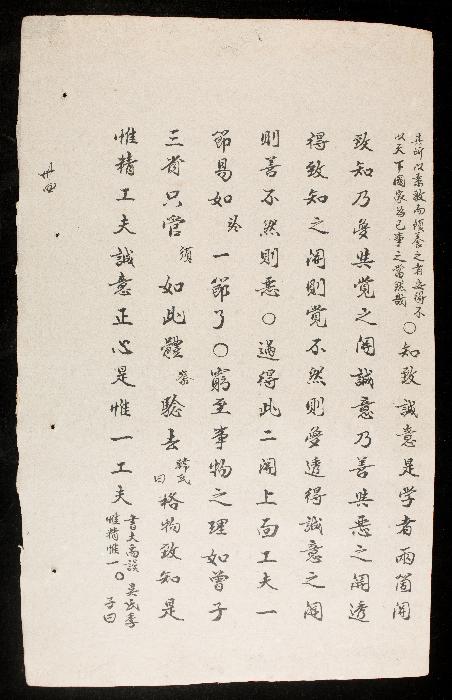 其所以素教而預養之者安得不
以天下國家為己事之當然哉
○知致誠意是学者兩箇関
致知乃夢與覚之関誠意乃善與悪之関透
得致知之関則覚不然則夢透得誠意之関
則善不然則悪○過得此二関上面工夫一
節易如於一節了○窮至事物之理如曾子
三省只管須如此體察驗去韓氏曰格物致知是
惟精工夫誠意正心是惟一工夫
書大禹謨
惟精惟一○
吳氏季
子曰
卅四